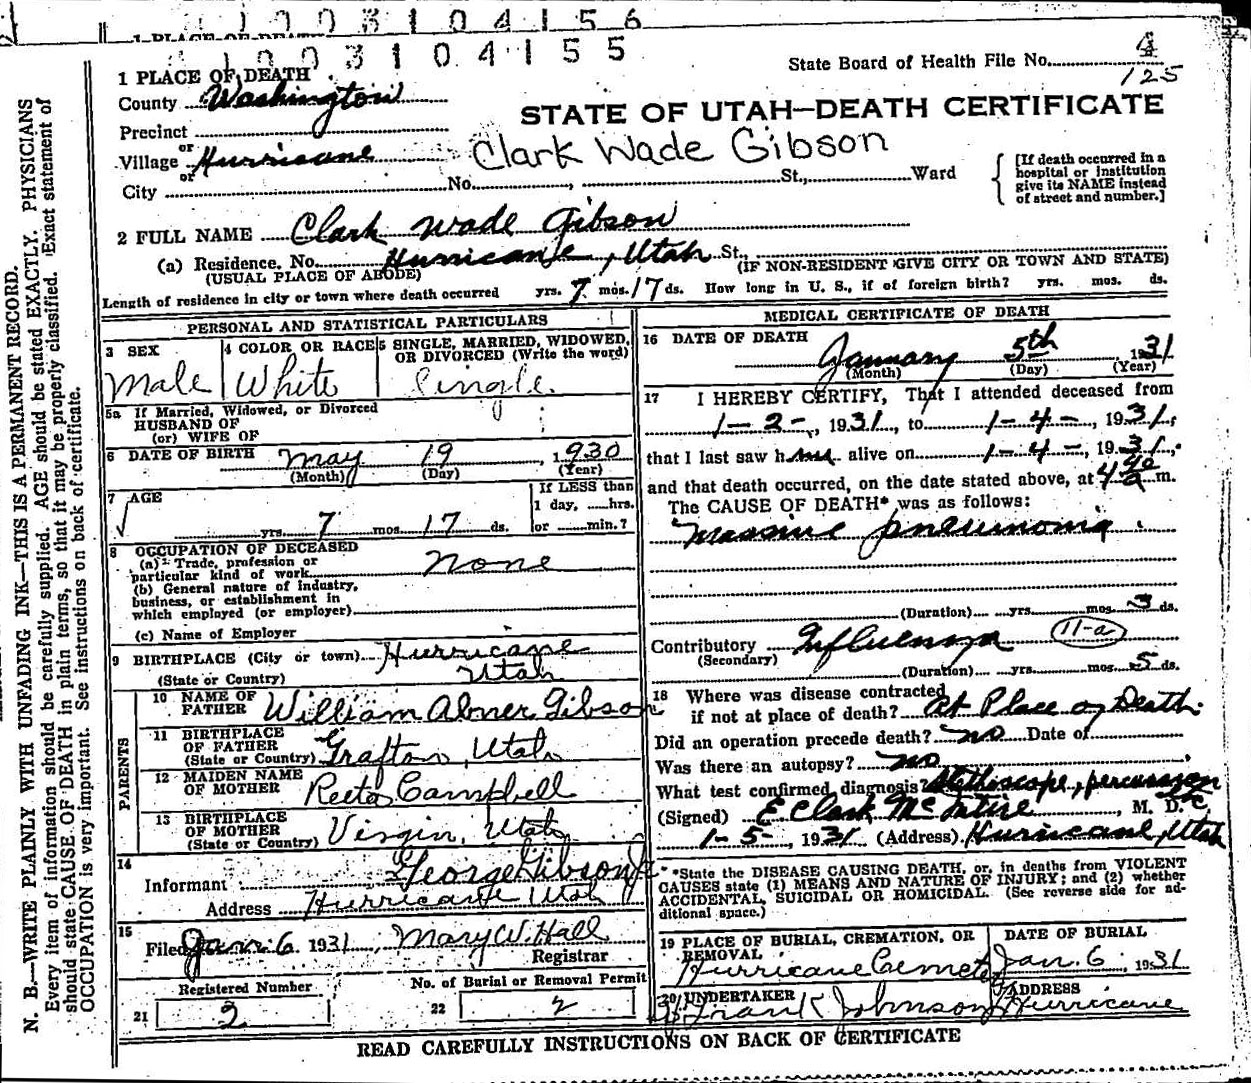 1003104156
1 PLACE OF DEATH
1003104155
State Board of Health File No. 4
125
1 PLACE OF DEATH
County Washington
STATE OF UTAH—DEATH CERTIFICATE
Precinct
or
Village Hurricane
Clark Wade Gibson
or
City No. , St., Ward
[If death occurred in a hospital or institution give its NAME instead of street and number.]
2 FULL NAME Clark Wade Gibson
(a) Residence. No. Hurricane, Utah St.,
(USUAL PLACE OF ABODE) (IF NON-RESIDENT GIVE CITY OR TOWN AND STATE)
Length of residence in city or town where death occurred yrs. 7 mos. 17 ds. How long in U. S., if of foreign birth? yrs. mos. ds.
PERSONAL AND STATISTICAL PARTICULARS
3 SEX 4 COLOR OR RACE 5 SINGLE, MARRIED, WIDOWED,
OR DIVORCED (Write the word)
Male White Single.
5a If Married, Widowed, or Divorced
HUSBAND OF
(or) WIFE OF
6 DATE OF BIRTH May 19, 1930
(Month) (Day) (Year)
7 AGE
If LESS than
1 day, hrs.
yrs. 7 mos. 17 ds. or min.?
8 OCCUPATION OF DECEASED
(a) Trade, profession or
particular kind of work None
(b) General nature of industry,
business, or establishment in
which employed (or employer)
(c) Name of Employer
9 BIRTHPLACE (City or town) Hurricane
(State or Country) Utah
PARENTS
10 NAME OF
FATHER William Abner Gibson
11 BIRTHPLACE
OF FATHER
(State or Country) Grafton, Utah
12 MAIDEN NAME
OF MOTHER Reeta Campbell
13 BIRTHPLACE
OF MOTHER
(State or Country) Virgin, Utah
14
Informant George Gibson Jr
Address Hurricane Utah
15
Filed Jan. 6 1931, Mary W. Hall
Registrar
Registered Number No. of Burial or Removal Permit
21 2 22 2
MEDICAL CERTIFICATE OF DEATH
16 DATE OF DEATH
January 5th, 1931
(Month) (Day) (Year)
17 I HEREBY CERTIFY, That I attended deceased from
1-2-, 1931, to 1-4-, 1931,
that I last saw him alive on 1-4-, 1931.
and that death occurred, on the date stated above, at 4 a m.
The CAUSE OF DEATH* was as follows:
Massive pneumonia
(Duration) yrs. mos. 3 ds.
Contributory Influenza 11-a
(Secondary)
(Duration) yrs. mos. 5 ds.
18 Where was disease contracted
if not at place of death? At Place of Death.
Did an operation precede death? no Date of
Was there an autopsy? no
What test confirmed diagnosis? Stethoscope, percussion
(Signed) E Clark McIntire, M. D.
1-5-, 1931 (Address) Hurricane, Utah
*State the DISEASE CAUSING DEATH, or, in deaths from VIOLENT
CAUSES state (1) MEANS AND NATURE OF INJURY; and (2) whether
ACCIDENTAL, SUICIDAL OR HOMICIDAL. (See reverse side for ad-
ditional space.)
19 PLACE OF BURIAL, CREMATION, OR
REMOVAL
DATE OF BURIAL
Hurricane Cemetery Jan. 6, 1931
20 UNDERTAKER ADDRESS
Frank Johnson Hurricane
READ CAREFULLY INSTRUCTIONS ON BACK OF CERTIFICATE
N. B.—WRITE PLAINLY WITH UNFADING INK—THIS IS A PERMANENT RECORD.
Every item of information should be carefully supplied. AGE should be stated EXACTLY. PHYSICIANS
should state CAUSE OF DEATH in plain terms, so that it may be properly classified. Exact statement of
OCCUPATION is very important. See instructions on back of certificate.